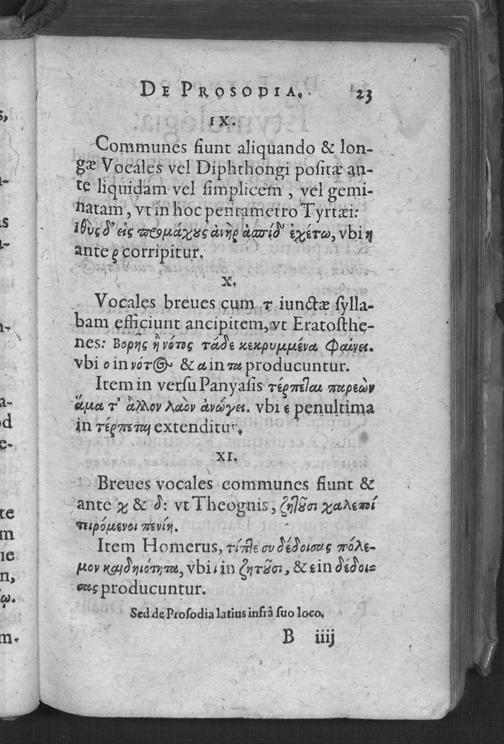 DE PROSODIA. 23
IX.
Communes fiunt aliquando & lon-
gæ Vocales vel Diphthongi positæ an-
te liquidam vel simplicem, vel gemi-
natam, vt in hoc pentametro Tyrtæi:
ἰθὺς δ' εἰς προμάχους ἀνὴρ ἀσπίδ' ἐχέτω, vbi η
ante ρ corripitur.
X.
Vocales breues cum τ iunctæ sylla-
bam efficiunt ancipitem, vt Eratosthe-
nes: Βορῆς ἢ νότος τάδε κεκρυμμένα φαίνει.
vbi ο in νότος & α in τα producuntur.
Item in versu Panyasis τέρπεται παρεὼν
ἅμα τ' ἄλλον λαὸν ἀνώγει. vbi ε penultima
in τέρπεται extenditur.
XI.
Breues vocales communes fiunt &
ante χ & δ: vt Theognis, ζητοῦσι χαλεπῇ
τειρόμενοι πενίῃ.
Item Homerus, τίπτε συ δέδοισας πόλε-
μον καὶ δηιότητα, vbi ι in ζητοῦσι, & ε in δέδοι-
σας producuntur.
Sed de Prosodia latius infrà suo loco.
B iiij